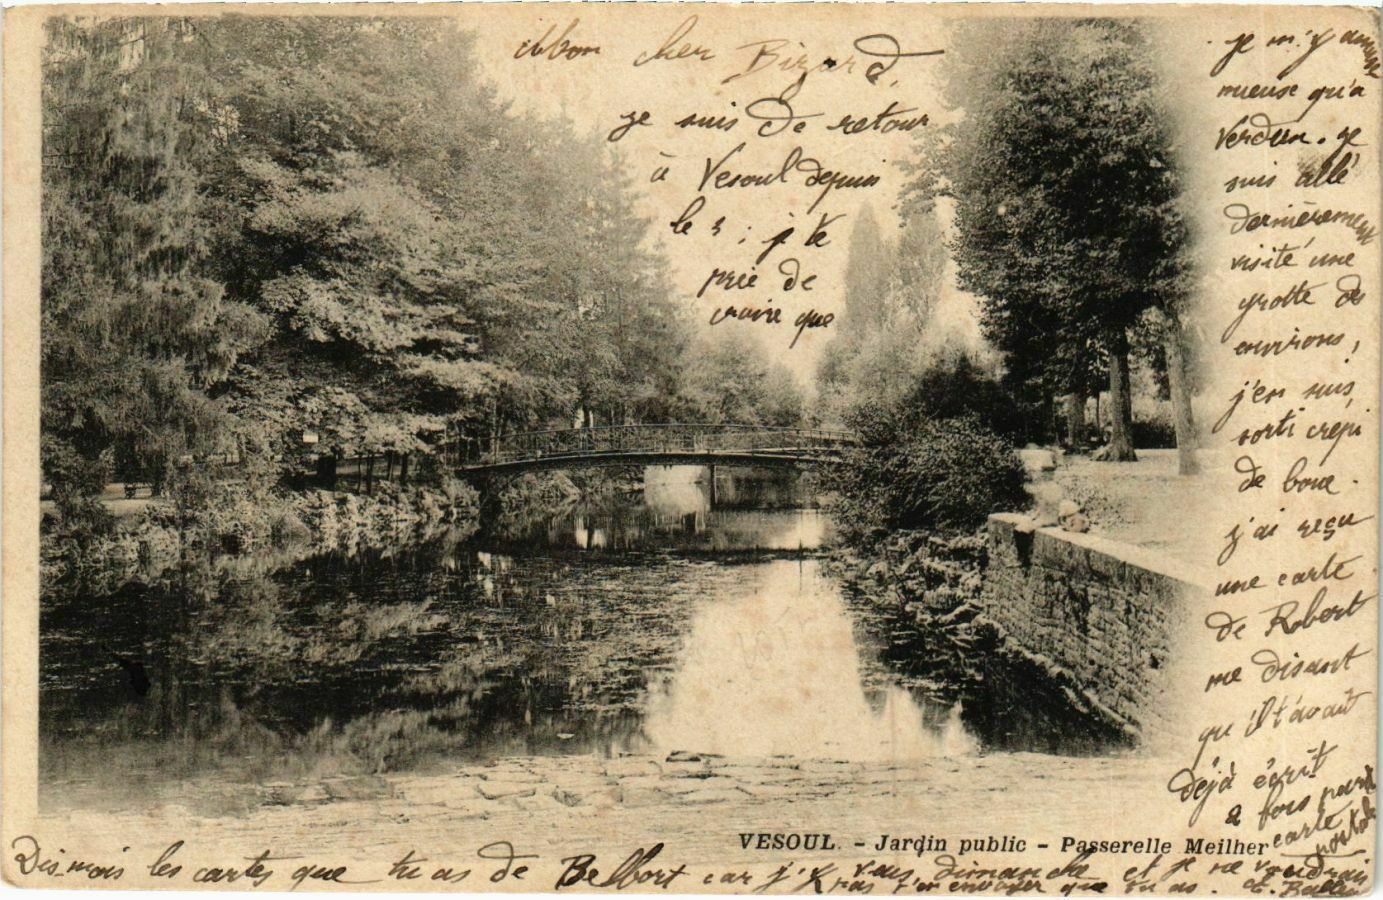 Mon cher Bizard,
je suis de retour
à Vesoul depuis
le 3 ; je te
prie de
croire que
je m'y amuse
mieuse qu'a
Verdun. je
suis allé
dernièrement
visité une
grotte des
environs,
j'en suis
sorti crépi
de boue.
j'ai reçu
une carte
de Robert
me disant
qu'il t'avait
déjà écrit
2 fois par
carte
postale
VESOUL. - Jardin public - Passerelle Meilher
Dis mois les cartes que tu as de Belfort car j'y vais dimanche et je ne voudrais
pas t'en envoyer que tu as.